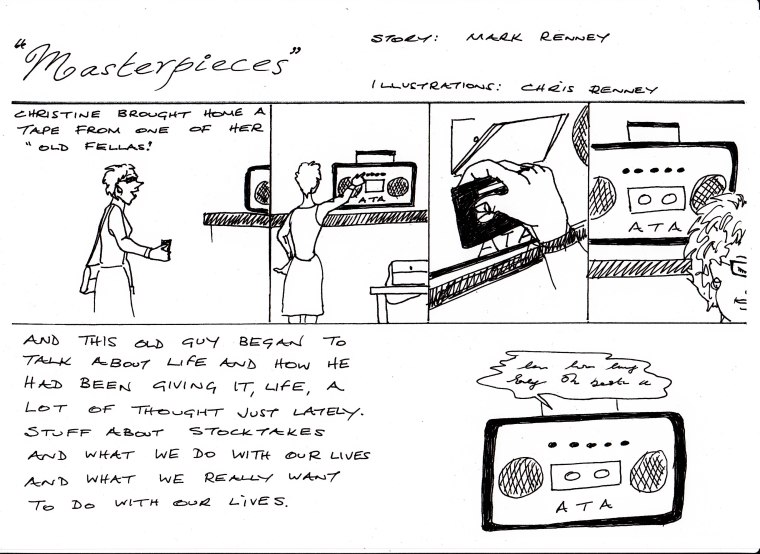 "Masterpieces"
STORY: MARK RENNEY
ILLUSTRATIONS: CHRIS RENNEY
CHRISTINE BROUGHT HOME A
TAPE FROM ONE OF HER
"OLD FELLAS!
ATA
ATA
ATA
AND THIS OLD GUY BEGAN TO
TALK ABOUT LIFE AND HOW HE
HAD BEEN GIVING IT, LIFE, A
LOT OF THOUGHT JUST LATELY.
STUFF ABOUT STOCKTAKES
AND WHAT WE DO WITH OUR LIVES
AND WHAT WE REALLY WANT
TO DO WITH OUR LIVES.
ATA